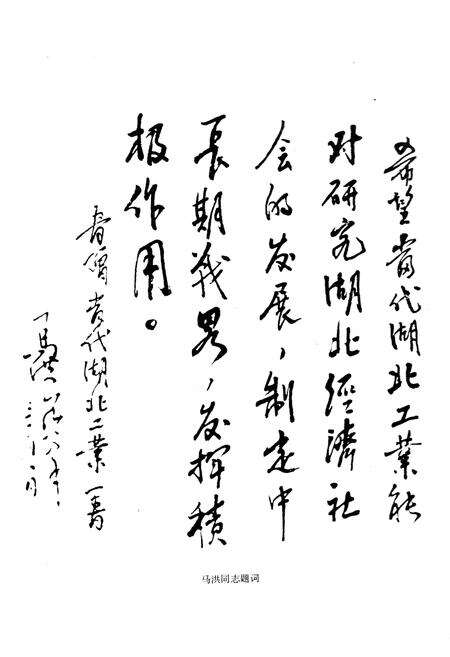 希望當代湖北工業能
对研究湖北經濟社
会的发展，制定中
長期战畧，发揮積
极作用。
當代湖北工業一書
馬洪
马洪同志题词